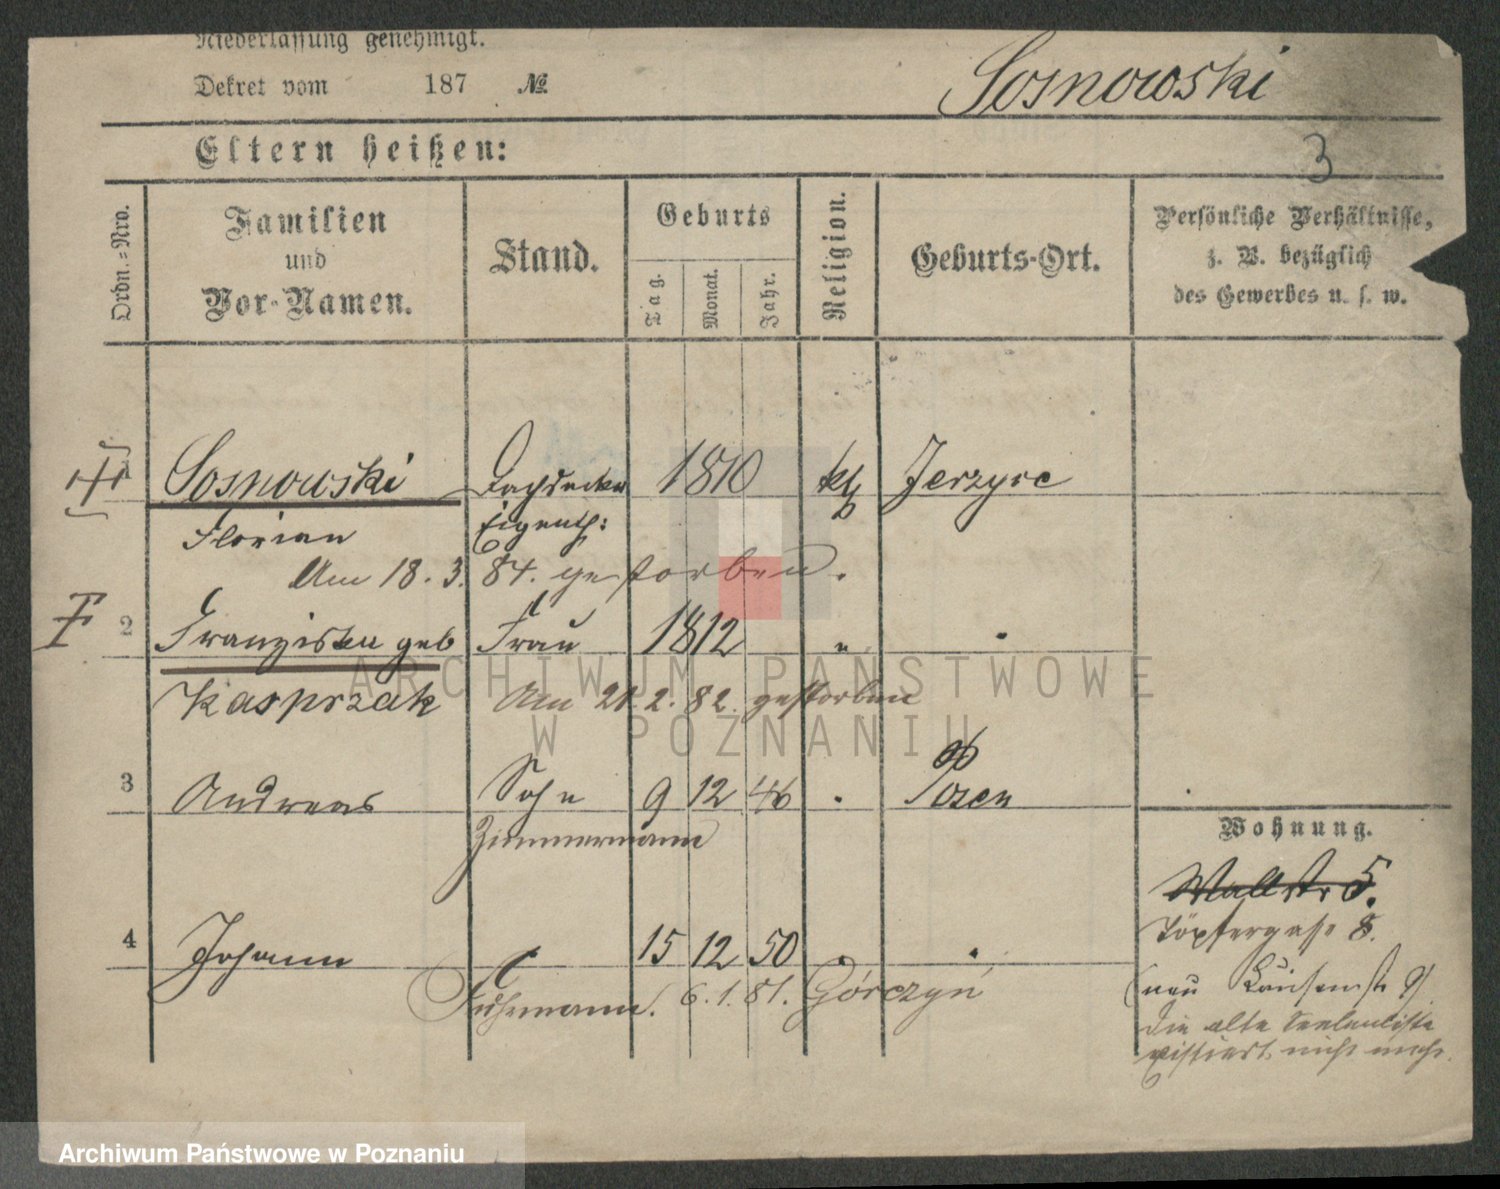 Niederlassung genehmigt.
Dekret vom 187 №
Sosnowski
3
Eltern heißen:
Ordn.-Nro.
Familien
und
Vor-Namen.
Stand.
Geburts
Tag.
Monat.
Jahr.
Religion.
Geburts-Ort.
Persönliche Verhältnisse,
z. B. bezüglich
des Gewerbes u. s. w.
Sosnowski Dachdecker 1810 kth Jerzyce
Florian Eigenth:
Am 18. 3. 84. gestorben.
2 Franziska geb Frau 1812 "
Kasprzak Am 21. 2. 82. gestorben
3 Andreas Sohn 9 12 46 Posen
Zimmermann
Wohnung.
Wallstr 5.
Töpfergasse 8.
4 Johann 15 12 50
Fuhrmann. 6. 1. 81. Górczyn
(neu
die alte Seelenliste
existiert nicht mehr.
ARCHIWUM PAŃSTWOWE
W POZNANIU
Archiwum Państwowe w Poznaniu